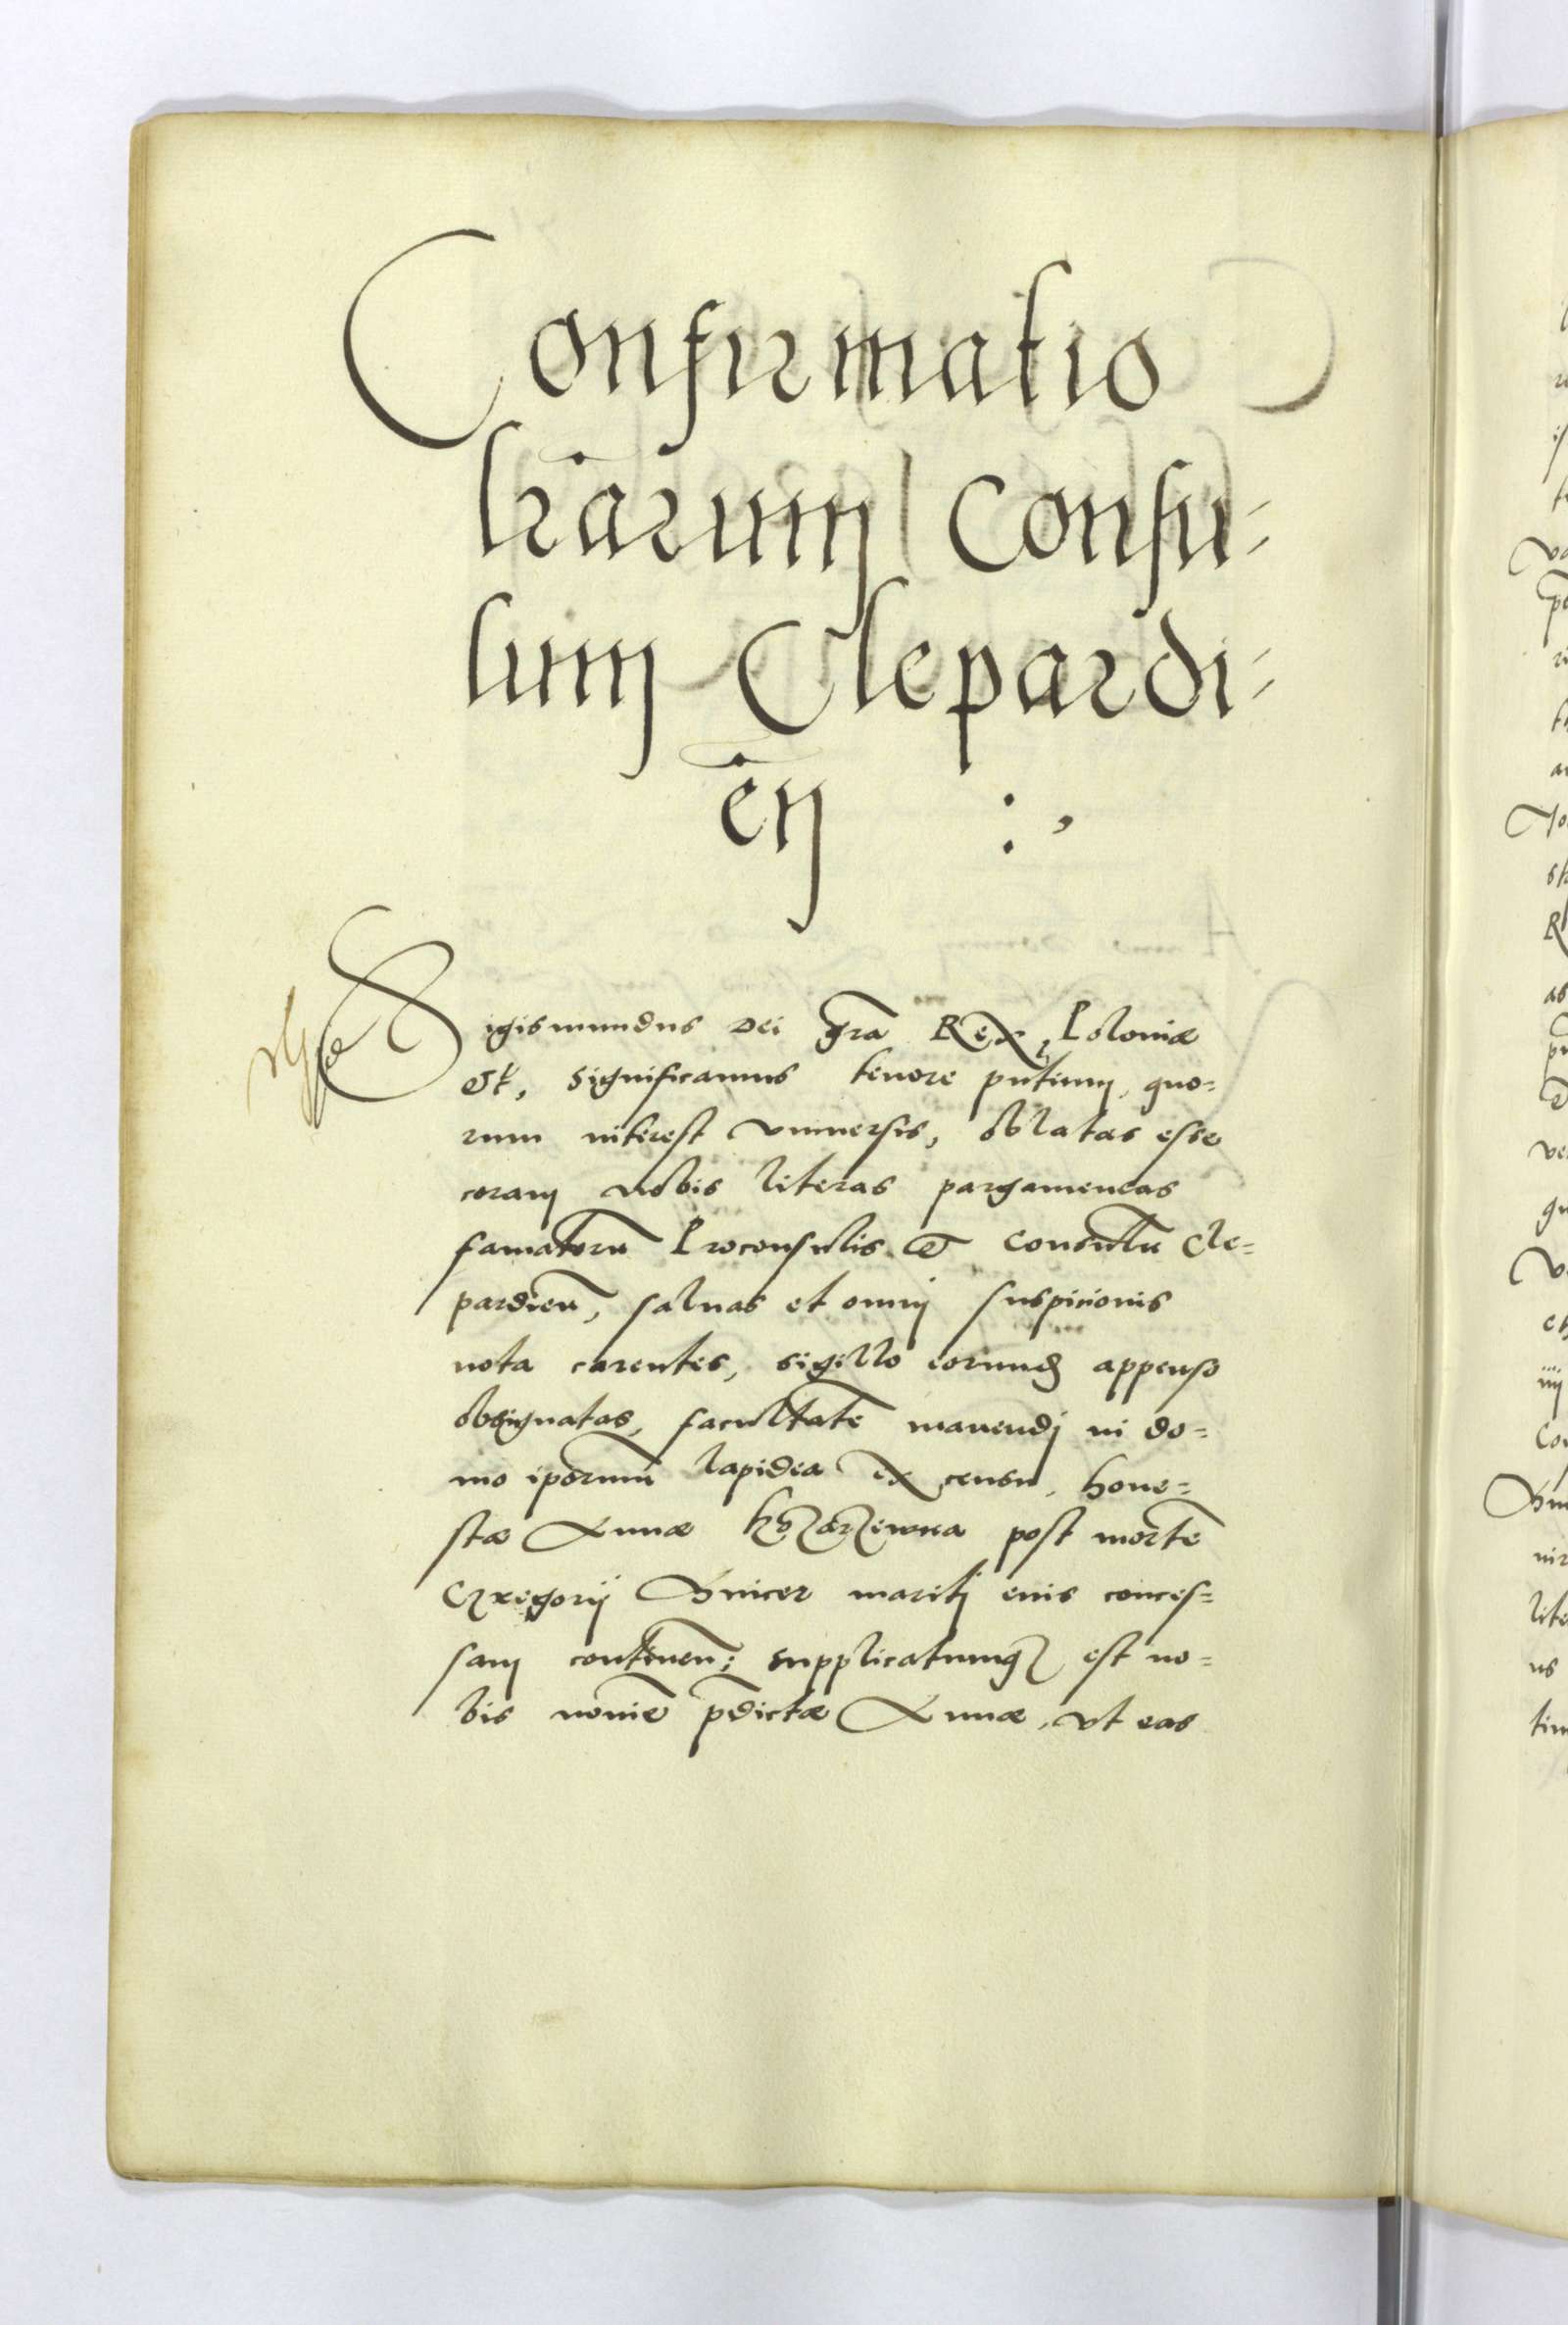 Confirmatio
lr̄arum Consu-
lum Clepardi-
en̄ :,
Sigismundus Dei gr̄a Rex Poloniæ
etc, significamus tenore pn̄tium, quo-
rum interest vniuersis, oblatas esse
coram nobis literas pargameneas
famatorū Proconsulis et Consulū Cle-
pardien̄, saluas et omni suspicionis
nota carentes, sigillo eorund appenso
obsignatas, facultatē manendi in do-
mo ip̄orum lapidea ex censu, hone-
stæ Annæ post mortē
Gregorij mariti eius conces-
sam continen̄; supplicatumq est no-
bis noni̅e p̄dictæ Annæ, vt eas